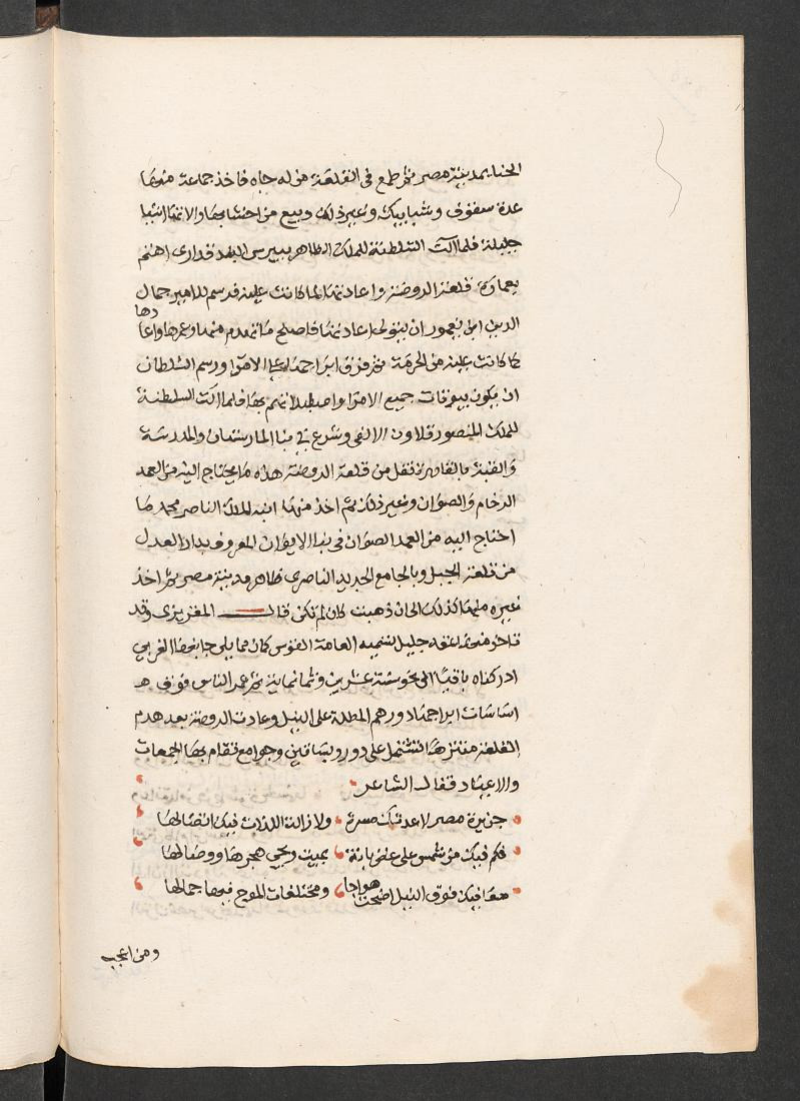 الخناء بمدينة مصر ثم طمع في القلعة من له جاه فاخذ جماعة منها
عدة سقوف وشبابيك وغير ذلك وبيع من اخشابها والاتها اشيا
جليلة فلما آلت السلطنة للملك الظاهر بيبرس البندقداري اهتم
بعمارة قلعة الروضة واعادتها لما كانت عليه فرسم للامير جمال
الدين ابن يغمور ان يتولى اعادتها فاصلح ما تهدم منها وعمرها واعا
دها
كما كانت عليه من الحرمة ثم فرق ابراجها على الامرا ورسم السلطان
ان يكون بيوتات جميع الامرا واصطبلاتهم بها فلما آلت السلطنة
للملك المنصور قلاون الالفي وشرع في بنا المارستان والمدرسة
والقبة بالقاهرة نقل من قلعة الروضة هذه ما يحتاج اليه من العمد
الرخام والصوان وغير ذلك ثم اخذ منها ابنه الملك الناصر محمد ما
احتاج اليه من العمد الصوان في بنا الايوان المعروف بدار العدل
من قلعة الجبل وبالجامع الجديد الناصري ظاهر مدينة مصر ثم اخذ
غيره منها كذلك الى ان ذهبت كان لم تكن قال المقريزى وقد
تاخر منها عقد جليل تسميه العامة القوس كان مما يلى جانبها الغربي
ادركناه باقيا الى نحو سنة عشرين وثمانماية ثم عمد الناس فوق
اساسات ابراجها دورهم المطلة على النيل وعادت الروضة بعد هدم
القلعة متنزها تشتمل على دور وبساتين وجوامع تقام بها الجمعات
والاعياد فقال الشاعر
جزيرة مصر لا عدتك مسرة ولا زالت اللذات فيك اتصالها
فكم فيك من شمس على غصن بانة يميت ويحيي هجرها ووصالها
مغانيك فوق النيل اضحت هوادجا ومختلفات الموج فيها جمالها
ومن اعجب